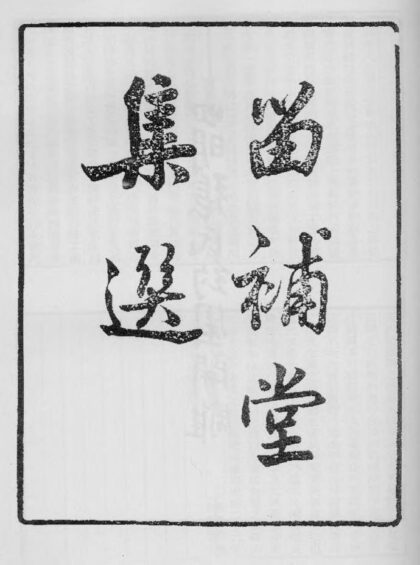 留補堂
集選